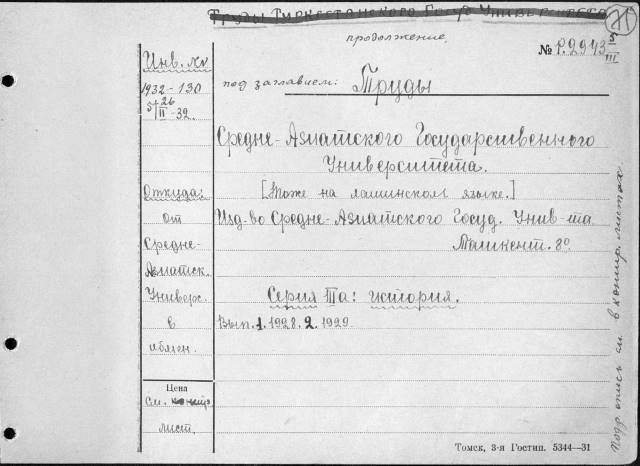 Труды Туркестанского Госуд Университета
продолжение.
№ Р.2943 5/III
Инв. №
1932-130
5/26/II-32.
под заглавием: Труды
Средне-Азиатского Государственного
Университета.
[Тоже на латинском языке.]
Изд-во Средне-Азиатского Госуд. Унив-та
Ташкент. 8°.
Серия IIIa: история.
Вып. 1. 1928. 2. 1929.
Откуда:
от
Средне-
Азиатск.
Универс.
в
обмен.
Цена
См.
лист.
Подр. опись см. в контр. листах.
Томск, 3-я Гостип. 5344—31